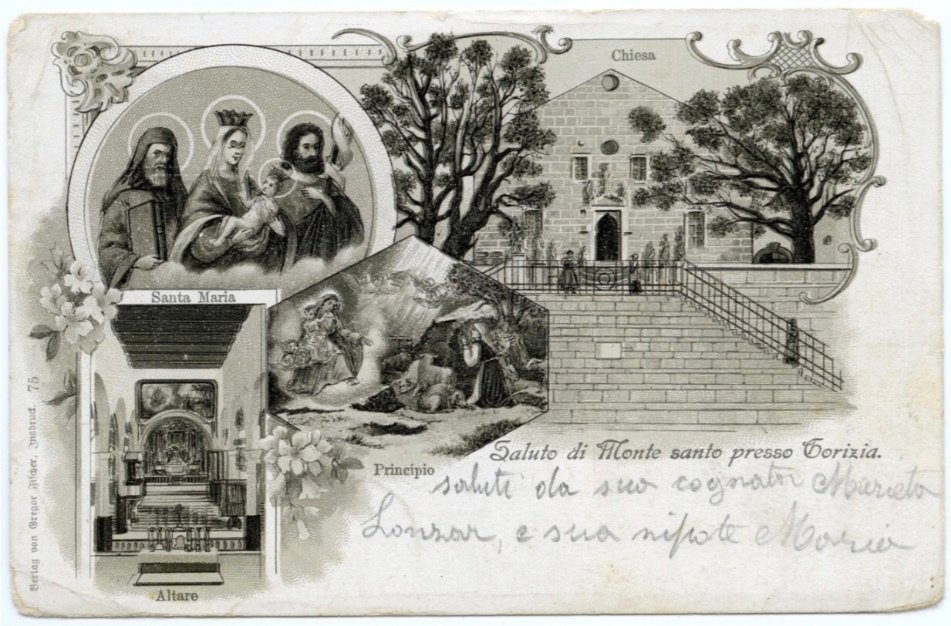 Chiesa
Santa Maria
Principio
Altare
Saluto di Monte santo presso Gorizia.
saluti da sua cognata Marieta
Lonzar, e sua nipote Maria
Verlag von Gregor Fischer, Innsbruck. 75